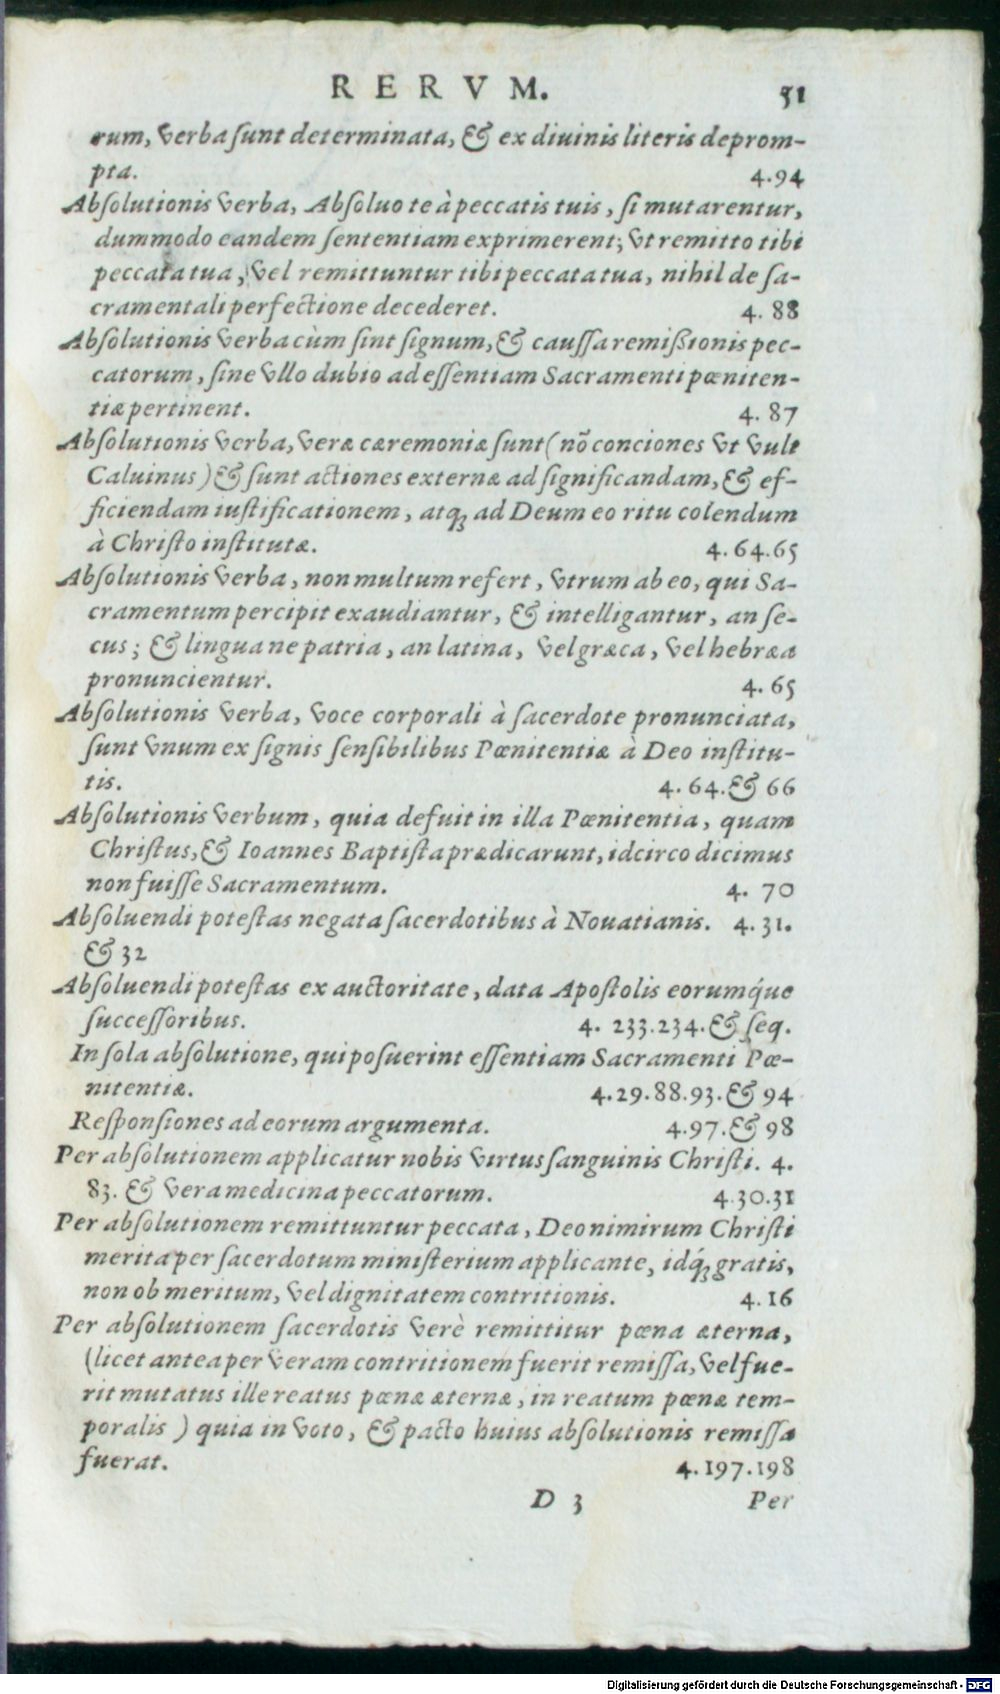 RERVM. 51
rum, verba sunt determinata, & ex diuinis literis deprom-
pta. 4.94
Absolutionis verba, Absoluo te à peccatis tuis, si mutarentur,
dummodo eandem sententiam exprimerent; vt remitto tibi
peccata tua, vel remittuntur tibi peccata tua, nihil de sa-
cramentali perfectione decederet. 4. 88
Absolutionis verba cùm sint signum, & caussa remißionis pec-
catorum, sine vllo dubio ad essentiam Sacramenti pœniten-
tiæ pertinent. 4. 87
Absolutionis verba, veræ cæremoniæ sunt (nõ conciones vt vult
Caluinus) & sunt actiones externæ ad significandam, & ef-
ficiendam iustificationem, atq; ad Deum eo ritu colendum
à Christo institutæ. 4. 64.65
Absolutionis verba, non multum refert, vtrum ab eo, qui Sa-
cramentum percipit exaudiantur, & intelligantur, an se-
cus; & lingua ne patria, an latina, vel græca, vel hebræa
pronuncientur. 4. 65
Absolutionis verba, voce corporali à sacerdote pronunciata,
sunt vnum ex signis sensibilibus Pœnitentiæ à Deo institu-
tis. 4. 64. & 66
Absolutionis verbum, quia defuit in illa Pœnitentia, quam
Christus, & Ioannes Baptista prædicarunt, idcirco dicimus
non fuisse Sacramentum. 4. 70
Absoluendi potestas negata sacerdotibus à Nouatianis. 4. 31.
& 32
Absoluendi potestas ex auctoritate, data Apostolis eorumq́ue
successoribus. 4. 233.234. & seq.
In sola absolutione, qui posuerint essentiam Sacramenti Pœ-
nitentiæ. 4.29.88.93. & 94
Responsiones ad eorum argumenta. 4.97. & 98
Per absolutionem applicatur nobis virtus sanguinis Christi. 4.
83. & vera medicina peccatorum. 4.30.31
Per absolutionem remittuntur peccata, Deo nimirum Christi
merita per sacerdotum ministerium applicante, idq́; gratis,
non ob meritum, vel dignitatem contritionis. 4.16
Per absolutionem sacerdotis verè remittitur pœna æterna,
(licet antea per veram contritionem fuerit remissa, vel fue-
rit mutatus ille reatus pœnæ æternæ, in reatum pœnæ tem-
poralis) quia in voto, & pacto huius absolutionis remissa
fuerat. 4.197.198
D 3 Per
Digitalisierung gefördert durch die Deutsche Forschungsgemeinschaft - DFG